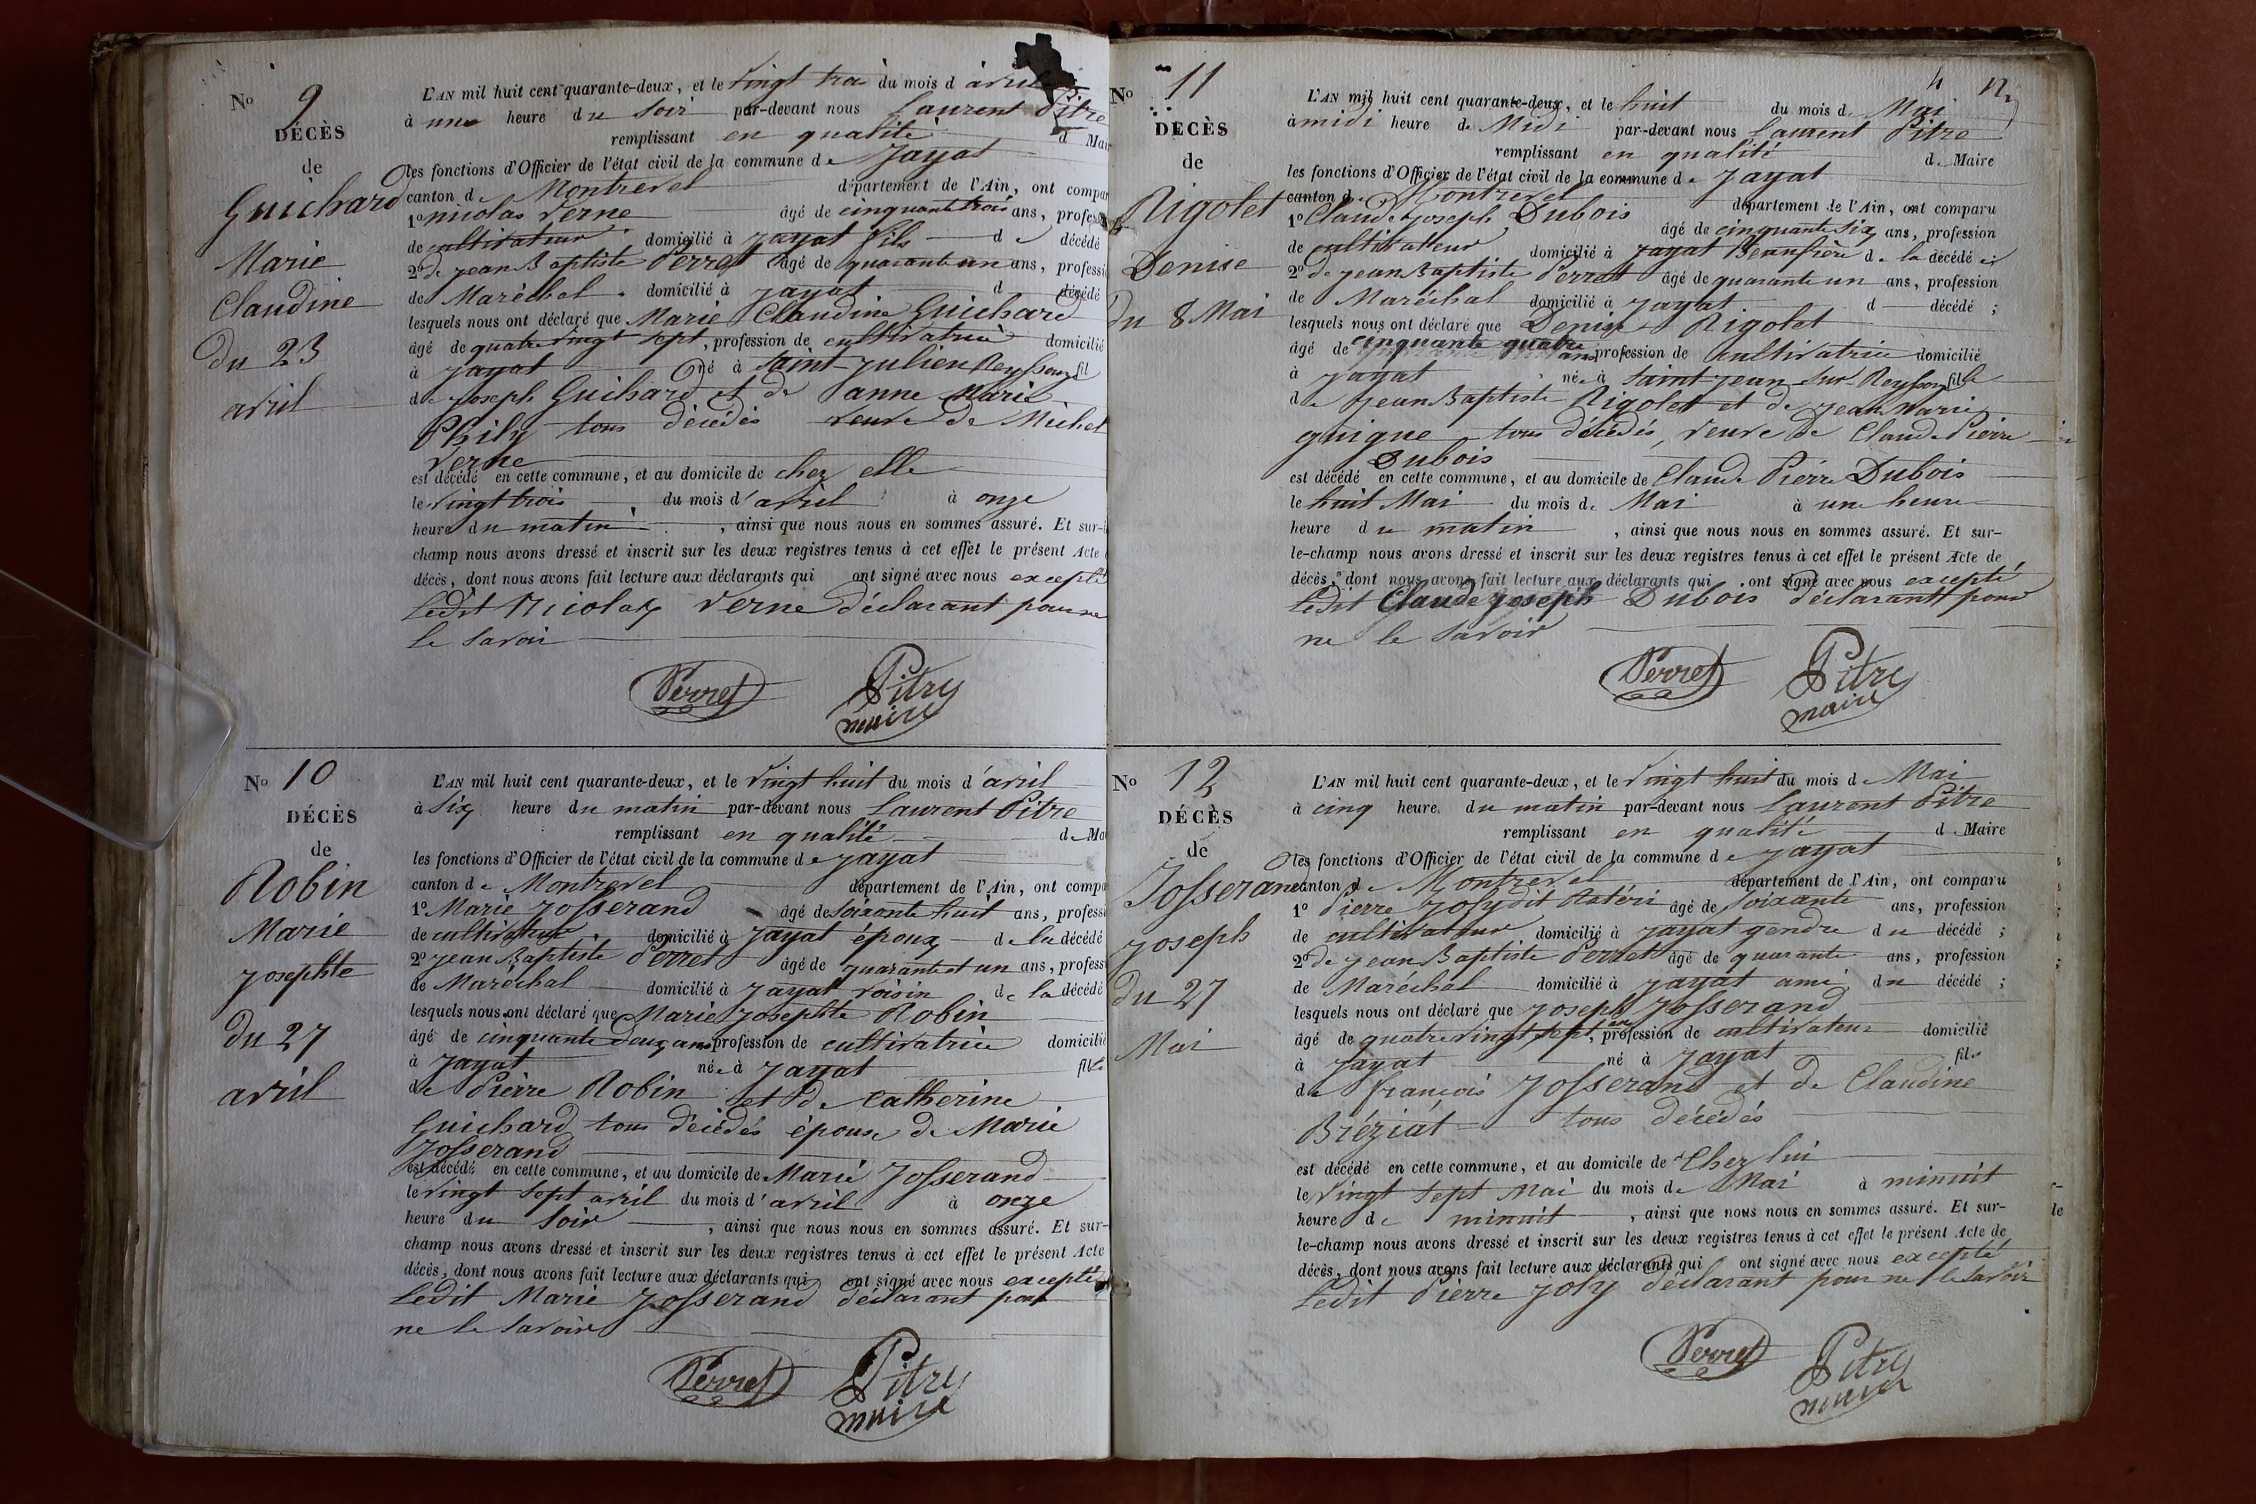 No 9
DÉCÈS
de
Guichard
Marie
Claudine
du 23
avril
L'AN mil huit cent quarante-deux, et le vingt trois du mois d'avril
à une heure du soir par-devant nous Laurent Pitre
remplissant en qualité d Mai
les fonctions d'Officier de l'état civil de la commune de Jayat
canton de Montrevel département de l'Ain, ont compar
1o nicolas Verne âgé de cinquante trois ans, profess
de cultivateur domicilié à Jayat fils de décédé
2o de jean Baptiste Perret âgé de quarante un ans, professi
de Maréchal domicilié à Jayat d décédé
lesquels nous ont déclaré que Marie Claudine Guichard
âgé de quatre vingt sept, profession de cultivatrice domicilié
à Jayat né à Saint Julien Reyssouze fil
de Joseph Guihard et de anne Marie
Phily tous décédés veuve de Michel
Verne
est décédé en cette commune, et au domicile de chez elle
le vingt trois du mois d'avril à onze
heure du matin, ainsi que nous nous en sommes assuré. Et sur-
champ nous avons dressé et inscrit sur les deux registres tenus à cet effet le présent Acte
décès, dont nous avons fait lecture aux déclarants qui ont signé avec nous excepté
Ledit Nicolas Verne déclarant pour ne
le savoir
Perret Pitre
maire
No 10
DÉCÈS
de
Robin
Marie
josephte
du 27
avril
L'AN mil huit cent quarante-deux, et le vingt huit du mois d'avril
à Six heure du matin par-devant nous Laurent Pitre
remplissant en qualité de Ma
les fonctions d'Officier de l'état civil de la commune de Jayat
canton de Montrevel département de l'Ain, ont compa
1o Marie Josserand âgé de soixante huit ans, professi
de cultivateur domicilié à Jayat époux de la décédé
2o jean Baptiste Perret âgé de quarante et un ans, professi
de Maréchal domicilié à Jayat voisin de la décédé
lesquels nous ont déclaré que Marie Josephte Robin
âgé de cinquante deux ans profession de cultivatrice domicilié
à Jayat née à Jayat fille
de Pierre Robin et de Catherine
Guichard tous décédés épouse de Marie
Josserand
est décédé en cette commune, et au domicile de Marie Josserand
le vingt sept avril du mois d'avril à onze
heure du soir, ainsi que nous nous en sommes assuré. Et sur-
champ nous avons dressé et inscrit sur les deux registres tenus à cet effet le présent Acte
décès, dont nous avons fait lecture aux déclarants qui ont signé avec nous excepté
Ledit Marie Josserand déclarant pour
ne le savoir
Perret Pitre
maire
4
No 11
DÉCÈS
de
Rigolet
Denise
du 8 Mai
L'AN mil huit cent quarante-deux, et le huit du mois de Mai
à midi heure de Midi par-devant nous Laurent Pitre
remplissant en qualité de Maire
les fonctions d'Officier de l'état civil de la commune de Jayat
canton de Montrevel département de l'Ain, ont comparu
1o Claude joseph Dubois âgé de cinquante six ans, profession
de cultivateur domicilié à Jayat Beaufrère de la décédé ;
2o de jean Baptiste Perret âgé de quarante un ans, profession
de Maréchal domicilié à Jayat d décédé ;
lesquels nous ont déclaré que Denise Rigolet
âgé de cinquante quatre ans profession de cultivatrice domicilié
à Jayat née à Saint jean Sur Reyssouze fille
de jean Baptiste Rigolet et de jean Marie
guigue tous décédés, veuve de Claude Pierre
Dubois
est décédé en cette commune, et au domicile de Claude Pierre Dubois
le huit Mai du mois de Mai à une heure
heure du matin, ainsi que nous nous en sommes assuré. Et sur-
le-champ nous avons dressé et inscrit sur les deux registres tenus à cet effet le présent Acte de
décès, dont nous avons fait lecture aux déclarants qui ont signé avec nous excepté
Ledit Claude Joseph Dubois déclarant pour
ne le savoir
Perret Pitre
maire
No 12
DÉCÈS
de
Josserand
joseph
du 27
Mai
L'AN mil huit cent quarante-deux, et le vingt huit du mois de Mai
à cinq heure du matin par-devant nous Laurent Pitre
remplissant en qualité de Maire
les fonctions d'Officier de l'état civil de la commune de Jayat
canton de Montrevel département de l'Ain, ont comparu
1o Pierre Joly dit âgé de soixante ans, profession
de cultivateur domicilié à Jayat gendre du décédé ;
2o de jean Baptiste Perret âgé de quarante ans, profession
de Maréchal domicilié à Jayat ami du décédé ;
lesquels nous ont déclaré que joseph Josserand
âgé de quatre vingt sept ans, profession de cultivateur domicilié
à Jayat né à Jayat fils
de françois Josserand et de Claudine
Bréziat tous décédés
est décédé en cette commune, et au domicile de Chez lui
le vingt sept Mai du mois de Mai à minuit
heure de minuit, ainsi que nous nous en sommes assuré. Et sur-
le-champ nous avons dressé et inscrit sur les deux registres tenus à cet effet le présent Acte de
décès, dont nous avons fait lecture aux déclarants qui ont signé avec nous excepté
Ledit Pierre Joly déclarant pour ne le savoir
Perret Pitre
maire